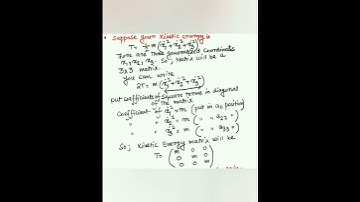 • Suppose your kinetic energy is
T = ½ m (ẋ₁² + ẋ₂² + ẋ₃²)
There are three generalized coordinates
x₁, x₂, x₃. So, Matrix will be a
3x3 matrix.
you can write
2T = m (ẋ₁² + ẋ₂² + ẋ₃²)
put coefficients of square terms in diagonal
of the matrix
Coefficient of ẋ₁² = m (put in a₁₁ position)
" " ẋ₂² = m ( " " a₂₂ " )
" " ẋ₃² = m ( " " a₃₃ " )
So; Kinetic Energy matrix will be
T = ( m 0 0
0 m 0
0 0 m )